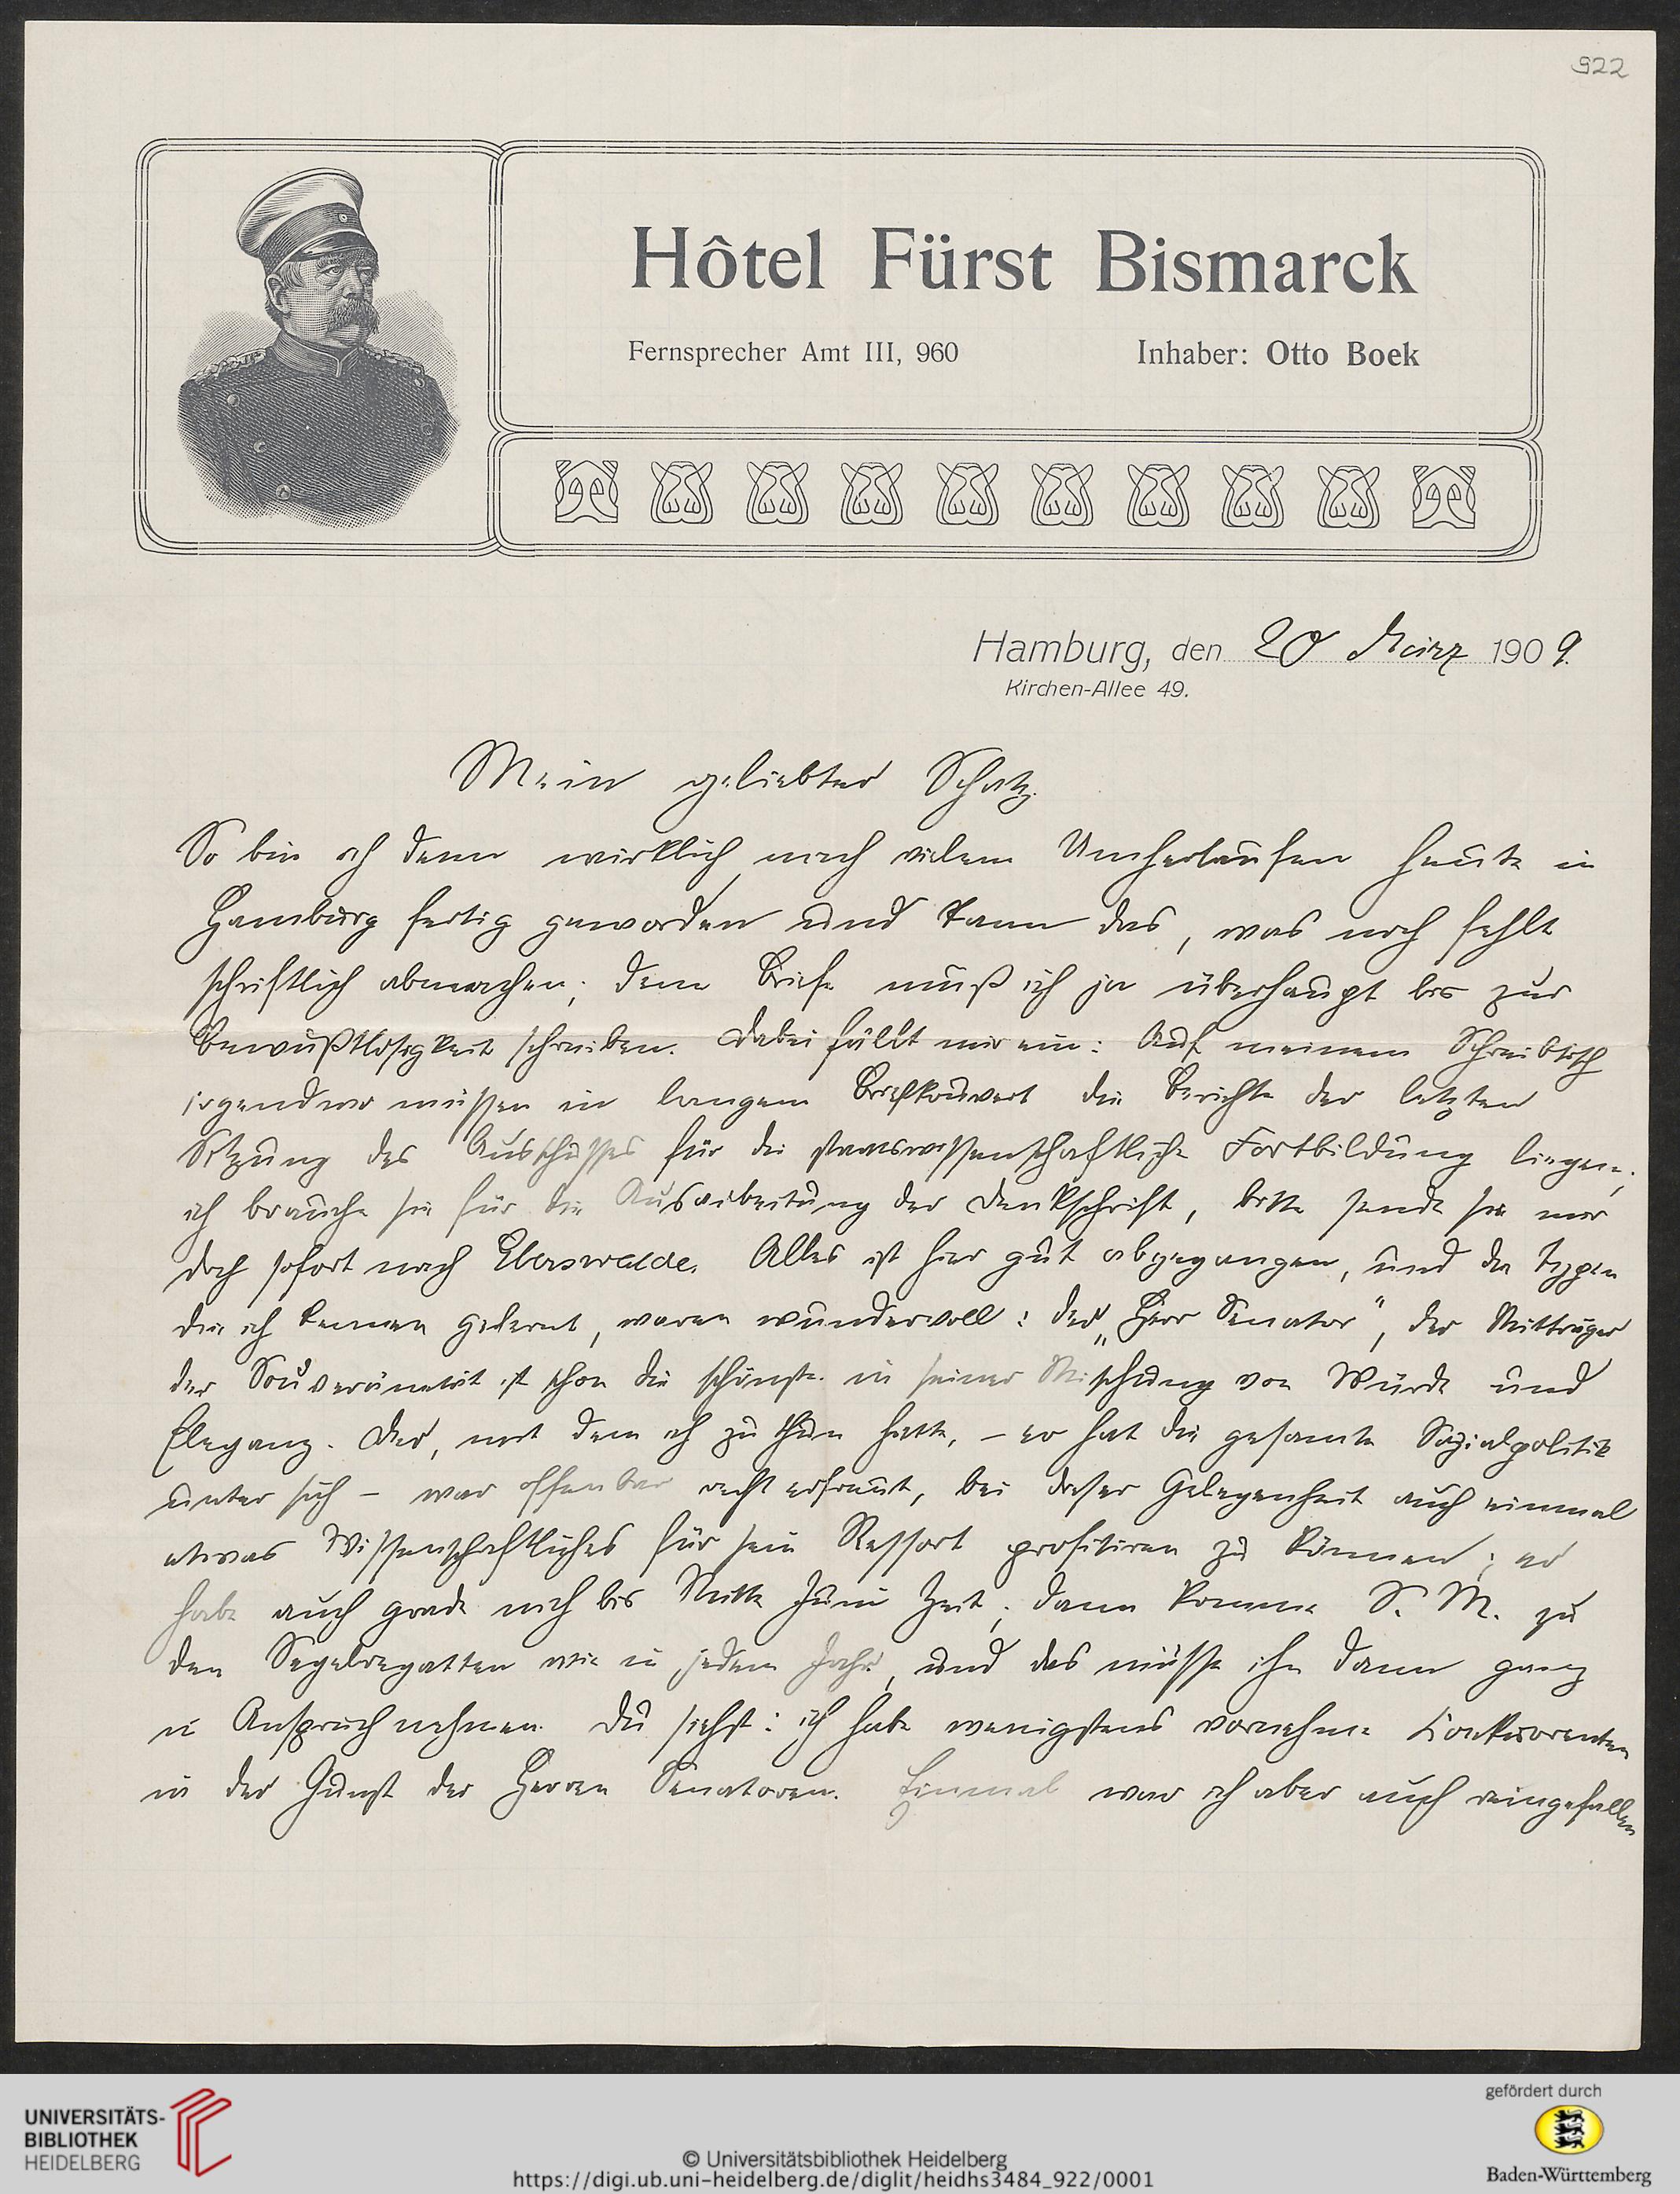 922
Hôtel Fürst Bismarck
Fernsprecher Amt III, 960 Inhaber: Otto Boek
Hamburg, den 20 März 1909.
Kirchen-Allee 49.
Mein geliebter Schatz.
So bin ich denn wirklich, nach vielem Umherlaufen heute in
Hamburg fertig geworden und kann das, was noch fehlt
schriftlich abmachen; denn Briefe muß ich ja überhaupt bis zur
Bewußtlosigkeit schreiben. Dabei fällt mir ein: Auf meinem Schreibtisch
irgendwo müssen in langem Briefkouvert die Berichte der letzten
Sitzung des Ausschusses für die staatswissenschaftliche Fortbildung liegen;
ich brauche sie für die Ausarbeitung der Denkschrift, bitte sende sie mir
doch sofort nach Eberswalde. Alles ist hier gut abgegangen, und die Typen
die ich kennen gelernt, waren wundervoll: der „Herr Senator", der Mitträger
der Souveränetät ist schon die schönste in seiner Mischung von Würde und
Eleganz. Der, mit dem ich zu thun hatte, – er hat die gesamte Sozialpolitik
unter sich – war offenbar recht erfreut, bei dieser Gelegenheit auch einmal
etwas Wissenschaftliches für sein Ressort profitiren zu können; er
habe auch grade noch bis Mitte Juni Zeit; dann komme S. M. zu
den Segelregatten wie in jedem Jahr, und das müsse ihn dann ganz
in Anspruch nehmen. Du siehst: ich habe wenigstens vornehme Konkurrenten
in der Gunst der Herren Senatoren. Einmal war ich aber auch reingefallen
UNIVERSITÄTS-
BIBLIOTHEK
HEIDELBERG
© Universitätsbibliothek Heidelberg
https://digi.ub.uni-heidelberg.de/diglit/heidhs3484_922/0001
gefördert durch
Baden-Württemberg